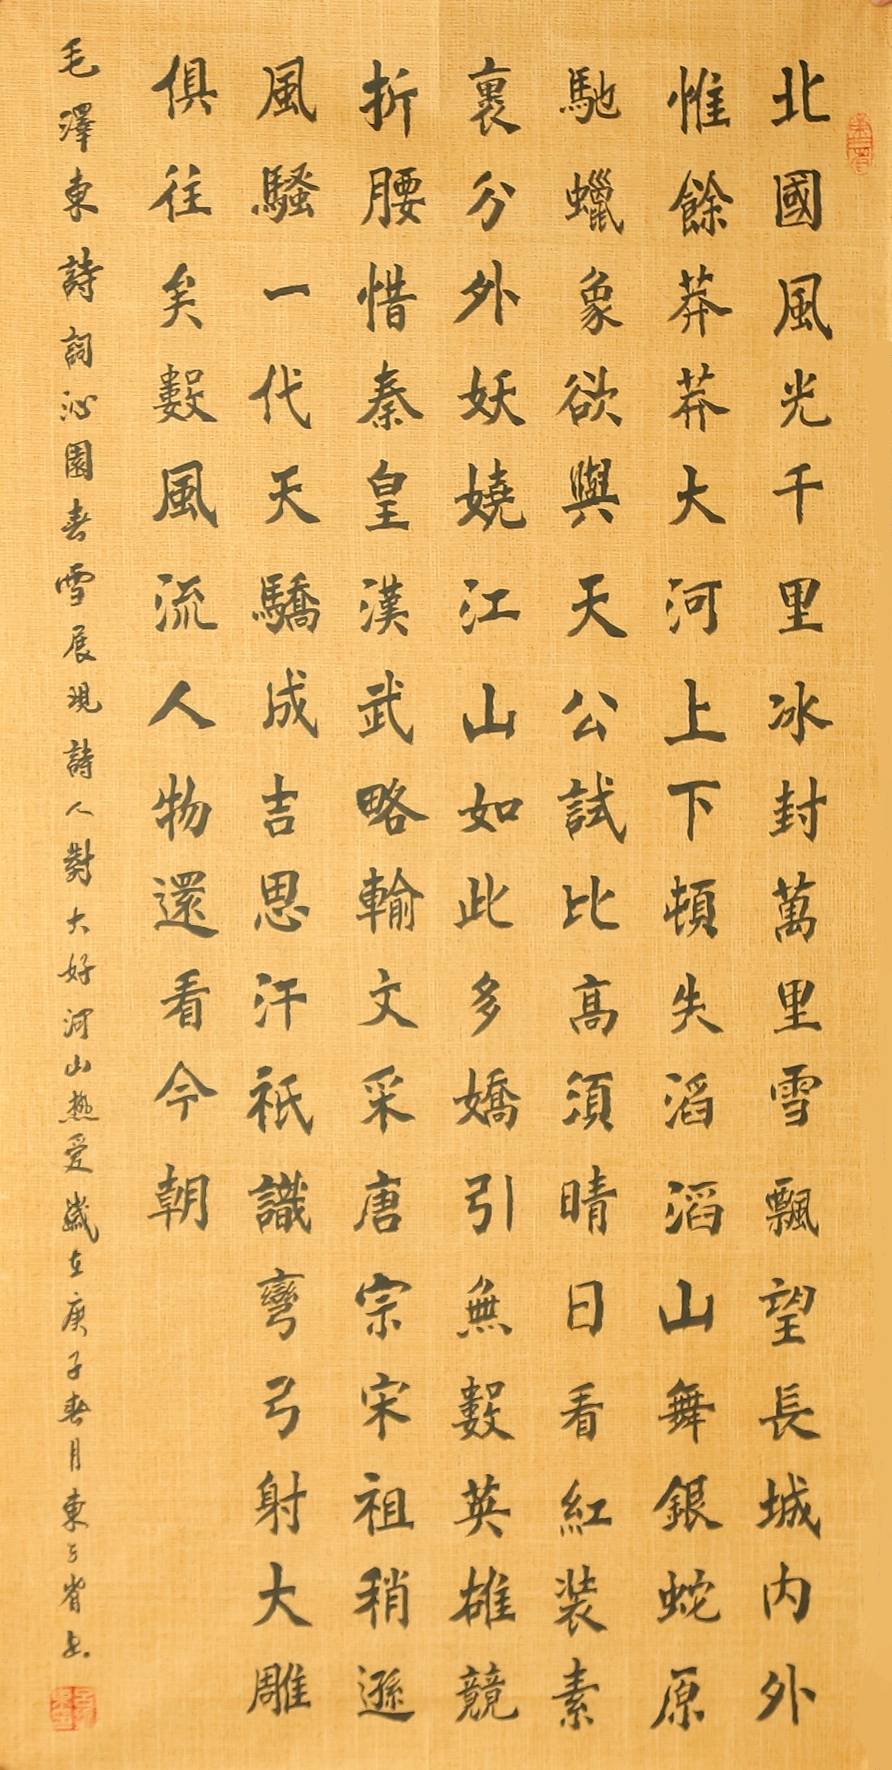 北國風光千里冰封萬里雪飄望長城内外
惟餘莽莽大河上下頓失滔滔山舞銀蛇原
馳蠟象欲與天公試比高須晴日看紅裝素
裹分外妖嬈江山如此多嬌引無數英雄競
折腰惜秦皇漢武略輸文采唐宗宋祖稍遜
風騷一代天驕成吉思汗祇識彎弓射大雕
俱往矣數風流人物還看今朝
毛澤東詩詞沁園春雪展現詩人對大好河山熱愛歲在庚子春月東